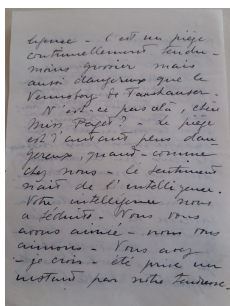 réponse - C'est un piège
continuellement tendu -
moins grossier mais
aussi dangereux que le
Venusberg de Tannhauser.
N'est-ce pas cela, chère
Miss Paget? - Le piège
est d'autant plus dan-
gereux, quand - comme
chez nous - le sentiment
naît de l'intelligence.
Votre intelligence nous
a séduits - Nous vous
avons aimée - nous vous
aimons - Vous avez
- je crois - été prise un
instant par notre tendresse -